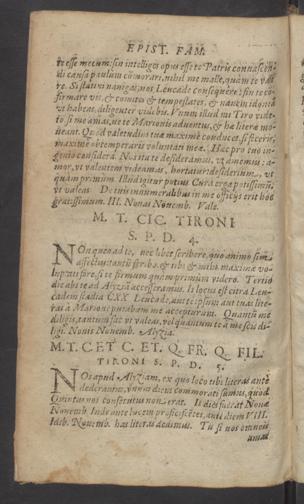 EPIST. FAM.
te esse mecum: sin intelliges opus esse te Patris connascen-
di causa paulum commorari, nihil me malle, quàm te vale
re. Si statim nauigas, nos Leucade consequere: sin te co-
firmare vis, & comites & tempestates, & nauem idoneā
vt habeas, diligenter videbis. Vnum illud mi Tiro vide-
to, si me amas, ne te Marionis aduentus, & hæ literæ mo-
ueant. Quòd valetudini tuæ maxime conducet, si feceris,
maxime obtemperaris voluntati meæ. Hæc pro tuo in-
genio considera. Nos ita te desideramus, vt amemus: a-
mor, vt valentem videamus, hortatur: desiderium, vt
quàm primum. Illud igitur potius. Cura ergo potissimū,
vt valeas. De tuis innumerabilibus in me officijs erit hoc
gratissimum. III. Nonas Nouemb. Vale.
M. T. CIC. TIRONI
S. P. D. 4.
NOn queo ad te, nec libet scribere, quo animo sim
affectus: tantū scribo, & tibi & mihi maximæ vo-
luptati fore, si te firmum quàm primùm videro. Tertio
die abs te ad Alyziā accesseramus. Is locus est citra Leu-
cadem stadia CXX. Leucade, aut te ipsum aut tuas lite-
ras à Marione putabam me accepturum. Quantū me
diligis, tantum fac vt valeas, vel quantum te à me scis di-
ligi. Nonis Nouemb. Alyzia.
M. T. C. ET C. ET. Q. FR. Q. FIL.
TIRONI S. P. D. 5.
NOs apud Alyziam, ex quo loco tibi literas antè
dederamus, vnum diem commorati sumus, quòd
Quintus nos consecutus non erat. Is dies fuerat Nonæ
Nouemb. Inde ante lucem proficiscentes, ante diem VIII.
Idib. Nouemb. has literas dedimus. Tu si nos omneis
amas